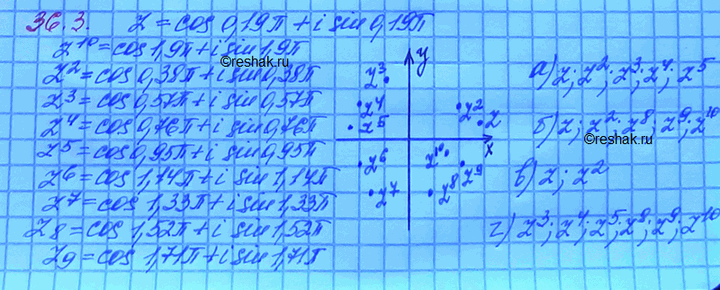 36.3. z = cos 0,19π + i sin 0,19π
z^10 = cos 1,9π + i sin 1,9π
©reshak.ru
z^2 = cos 0,38π + i sin 0,38π
z^3 = cos 0,57π + i sin 0,57π
z^4 = cos 0,76π + i sin 0,76π
z^5 = cos 0,95π + i sin 0,95π
z^6 = cos 1,14π + i sin 1,14π
z^7 = cos 1,33π + i sin 1,33π
z8 = cos 1,52π + i sin 1,52π
z9 = cos 1,71π + i sin 1,71π
y
z^3
z^4
z^2
z^5
z
x
z^6
z^10
z^7
z^8 z^9
а) z; z^2; z^3; z^4; z^5
©reshak.ru
б) z; z^2; z^8; z^9; z^10
в) z; z^2
г) z^3; z^4; z^5; z^8; z^9; z^10